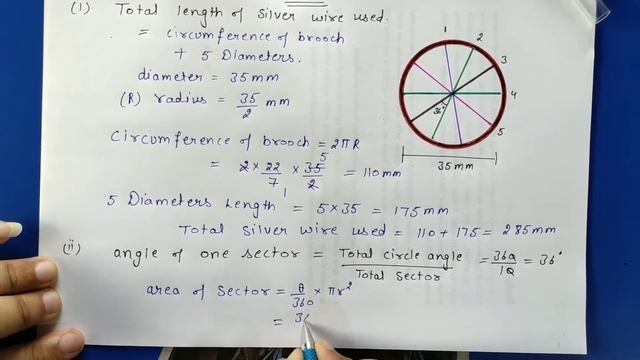 (i) Total length of silver wire used.
= circumference of brooch
+ 5 Diameters.
diameter = 35mm
(R) radius = 35/2 mm
Circumference of brooch = 2πR
= 2 × 22/7 × 35/2 = 110mm
5
1
5 Diameters Length = 5×35 = 175mm
Total silver wire used = 110 + 175 = 285mm
(ii) angle of one sector = Total circle angle / Total sector = 360/10 = 36°
area of sector = θ/360 × πr²
= 36
1
2
3
4
5
36°
35mm